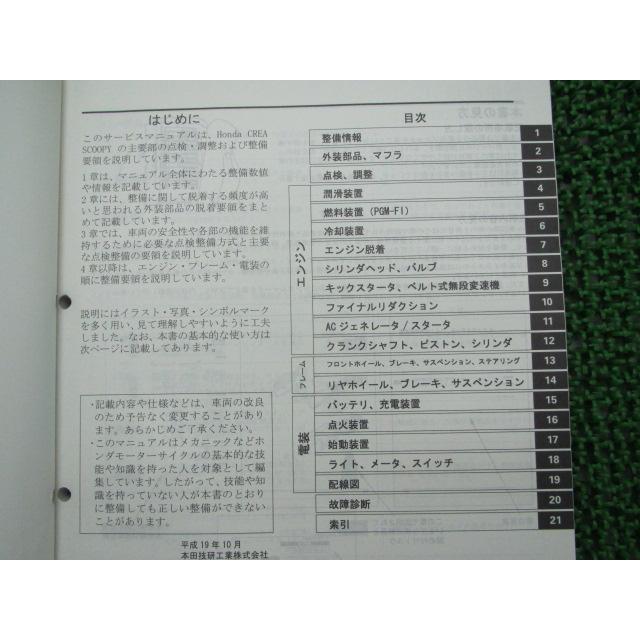 はじめに
このサービスマニュアルは、Honda CREA
SCOOPY の主要部の点検・調整および整備
要領を説明しています。
1 章は、マニュアル全体にわたる整備数値
や情報を記載しています。
2 章には、整備に関して脱着する頻度が高
いと思われる外装部品の脱着要領をまと
めて記載しています。
3 章では、車両の安全性や各部の機能を維
持するために必要な点検整備方式と主要
な点検整備の要領を説明しています。
4 章以降は、エンジン・フレーム・電装の
順に整備要領を説明しています。
説明にはイラスト・写真・シンボルマーク
を多く用い、見て理解しやすいように工夫
しました。なお、本書の基本的な使い方は
次ページに記載してあります。
・記載内容や仕様などは、車両の改良
のため予告なく変更することがあり
ます。あらかじめご了承ください。
・このマニュアルはメカニックなどホ
ンダモーターサイクルの基本的な技
能や知識を持った人を対象として編
集しています。したがって、技能や知
識を持っていない人が本書のとおり
に整備しても正しい整備ができない
ことがあります。
平成 19 年 10 月
本田技研工業株式会社
目次
整備情報 1
外装部品、マフラ 2
点検、調整 3
エンジン
潤滑装置 4
燃料装置 (PGM-FI) 5
冷却装置 6
エンジン脱着 7
シリンダヘッド、バルブ 8
キックスタータ、ベルト式無段変速機 9
ファイナルリダクション 10
AC ジェネレータ / スタータ 11
クランクシャフト、ピストン、シリンダ 12
フレーム
フロントホイール、ブレーキ、サスペンション、ステアリング 13
リヤホイール、ブレーキ、サスペンション 14
電装
バッテリ、充電装置 15
点火装置 16
始動装置 17
ライト、メータ、スイッチ 18
配線図 19
故障診断 20
索引 21